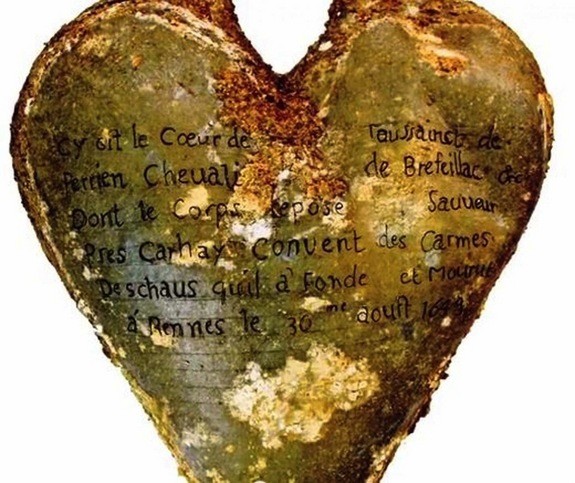 Cy Git le Cœur de Toussainct de
Perrien Cheuali de Brefeillac
Dont le Corps repose Sauueur
Pres Carhay Conuent des Carmes
Deschaus quil a fonde et Mourut
á Rennes le 30 me aoust